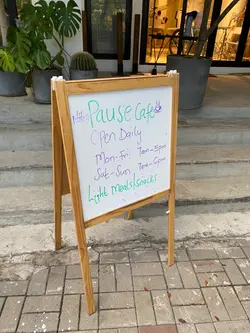 Pause Cafe
Open Daily
Mon-Fri: 7am-5pm
Sat-Sun, 7am-6pm
Light Meals|Snacks